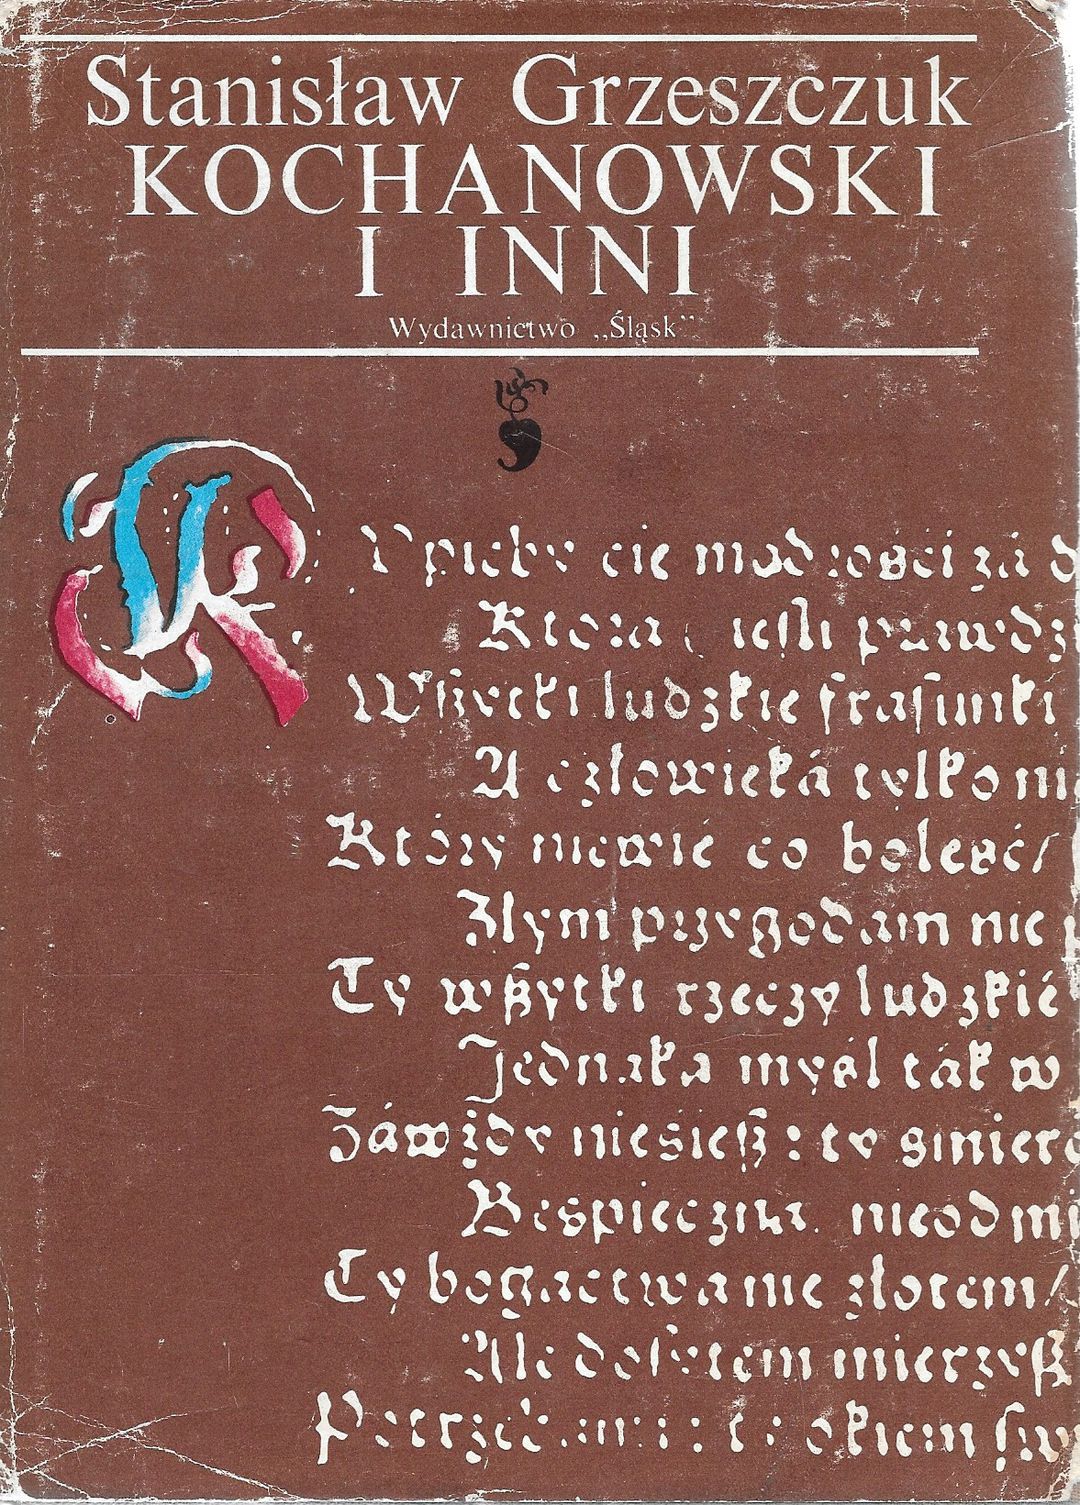 Stanisław Grzeszczuk
KOCHANOWSKI
I INNI
Wydawnictwo „Śląsk”
K
cię mądrości zá d
Ktora ieſli prawdz
Wßytki ludzkie fraſunki
A człowieká tylko ni
Który niewié co boleść/
Złym przygodam nic p
Ty wßytki rzeczy ludzkié
Jednaka myśl ták w
Záwżdy niesieß: ty śmierć
Bespieczna, nieodmi
Ty bogactwa nie złotem/
Ale doſytem mierzyß
ty okiem ſw